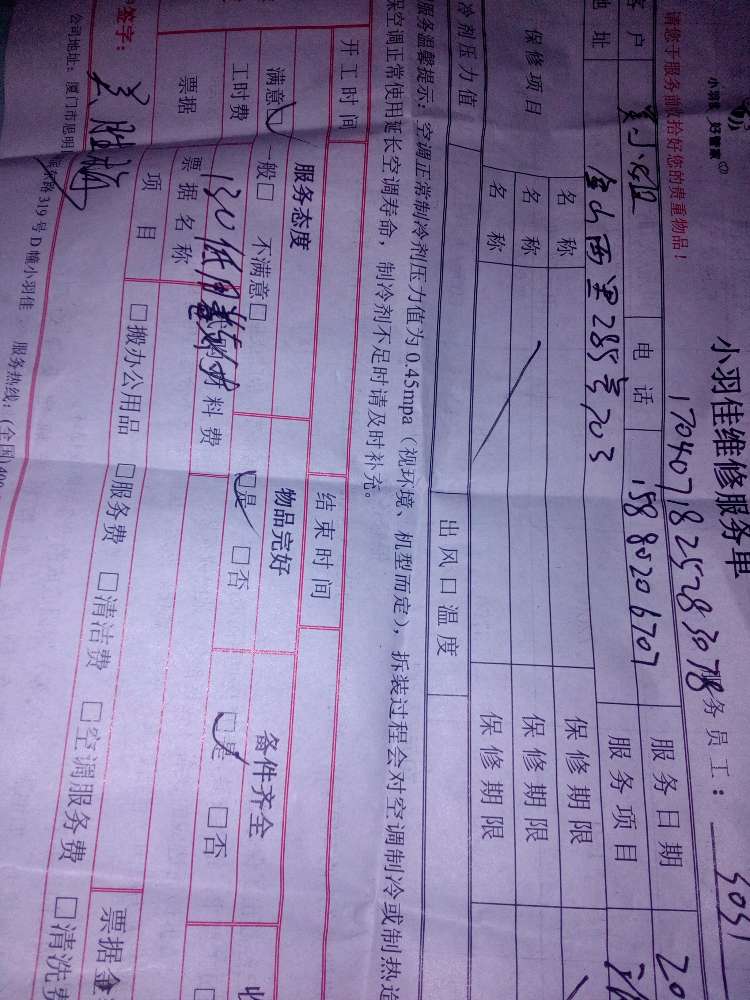 小羽佳 好管家
小羽佳维修服务单
请您于服务前收拾好您的贵重物品！
1704071825283078
务员工：
5051
客户
电话
15880206707
服务日期
地址
金山西里285号703
服务项目
保修项目
名称
保修期限
名称
保修期限
名称
保修期限
冷剂压力值
出风口温度
服务温馨提示：空调正常制冷剂压力值为0.45mpa（视环境、机型而定），拆装过程会对空调制冷或制热连
保空调正常使用延长空调寿命，制冷剂不足时请及时补充。
开工时间
结束时间
服务态度
物品完好
备件齐全
满意□ 一般□ 不满意□
□是 □否
□是 □否
工时费
130
材料费
收
票据
票据名称
票据金
项目
□搬办公用品 □服务费 □清洁费 □空调服务费 □清洗费
签字：
公司地址：厦门市思明
路319号D幢小羽佳 服务热线：(全国)400